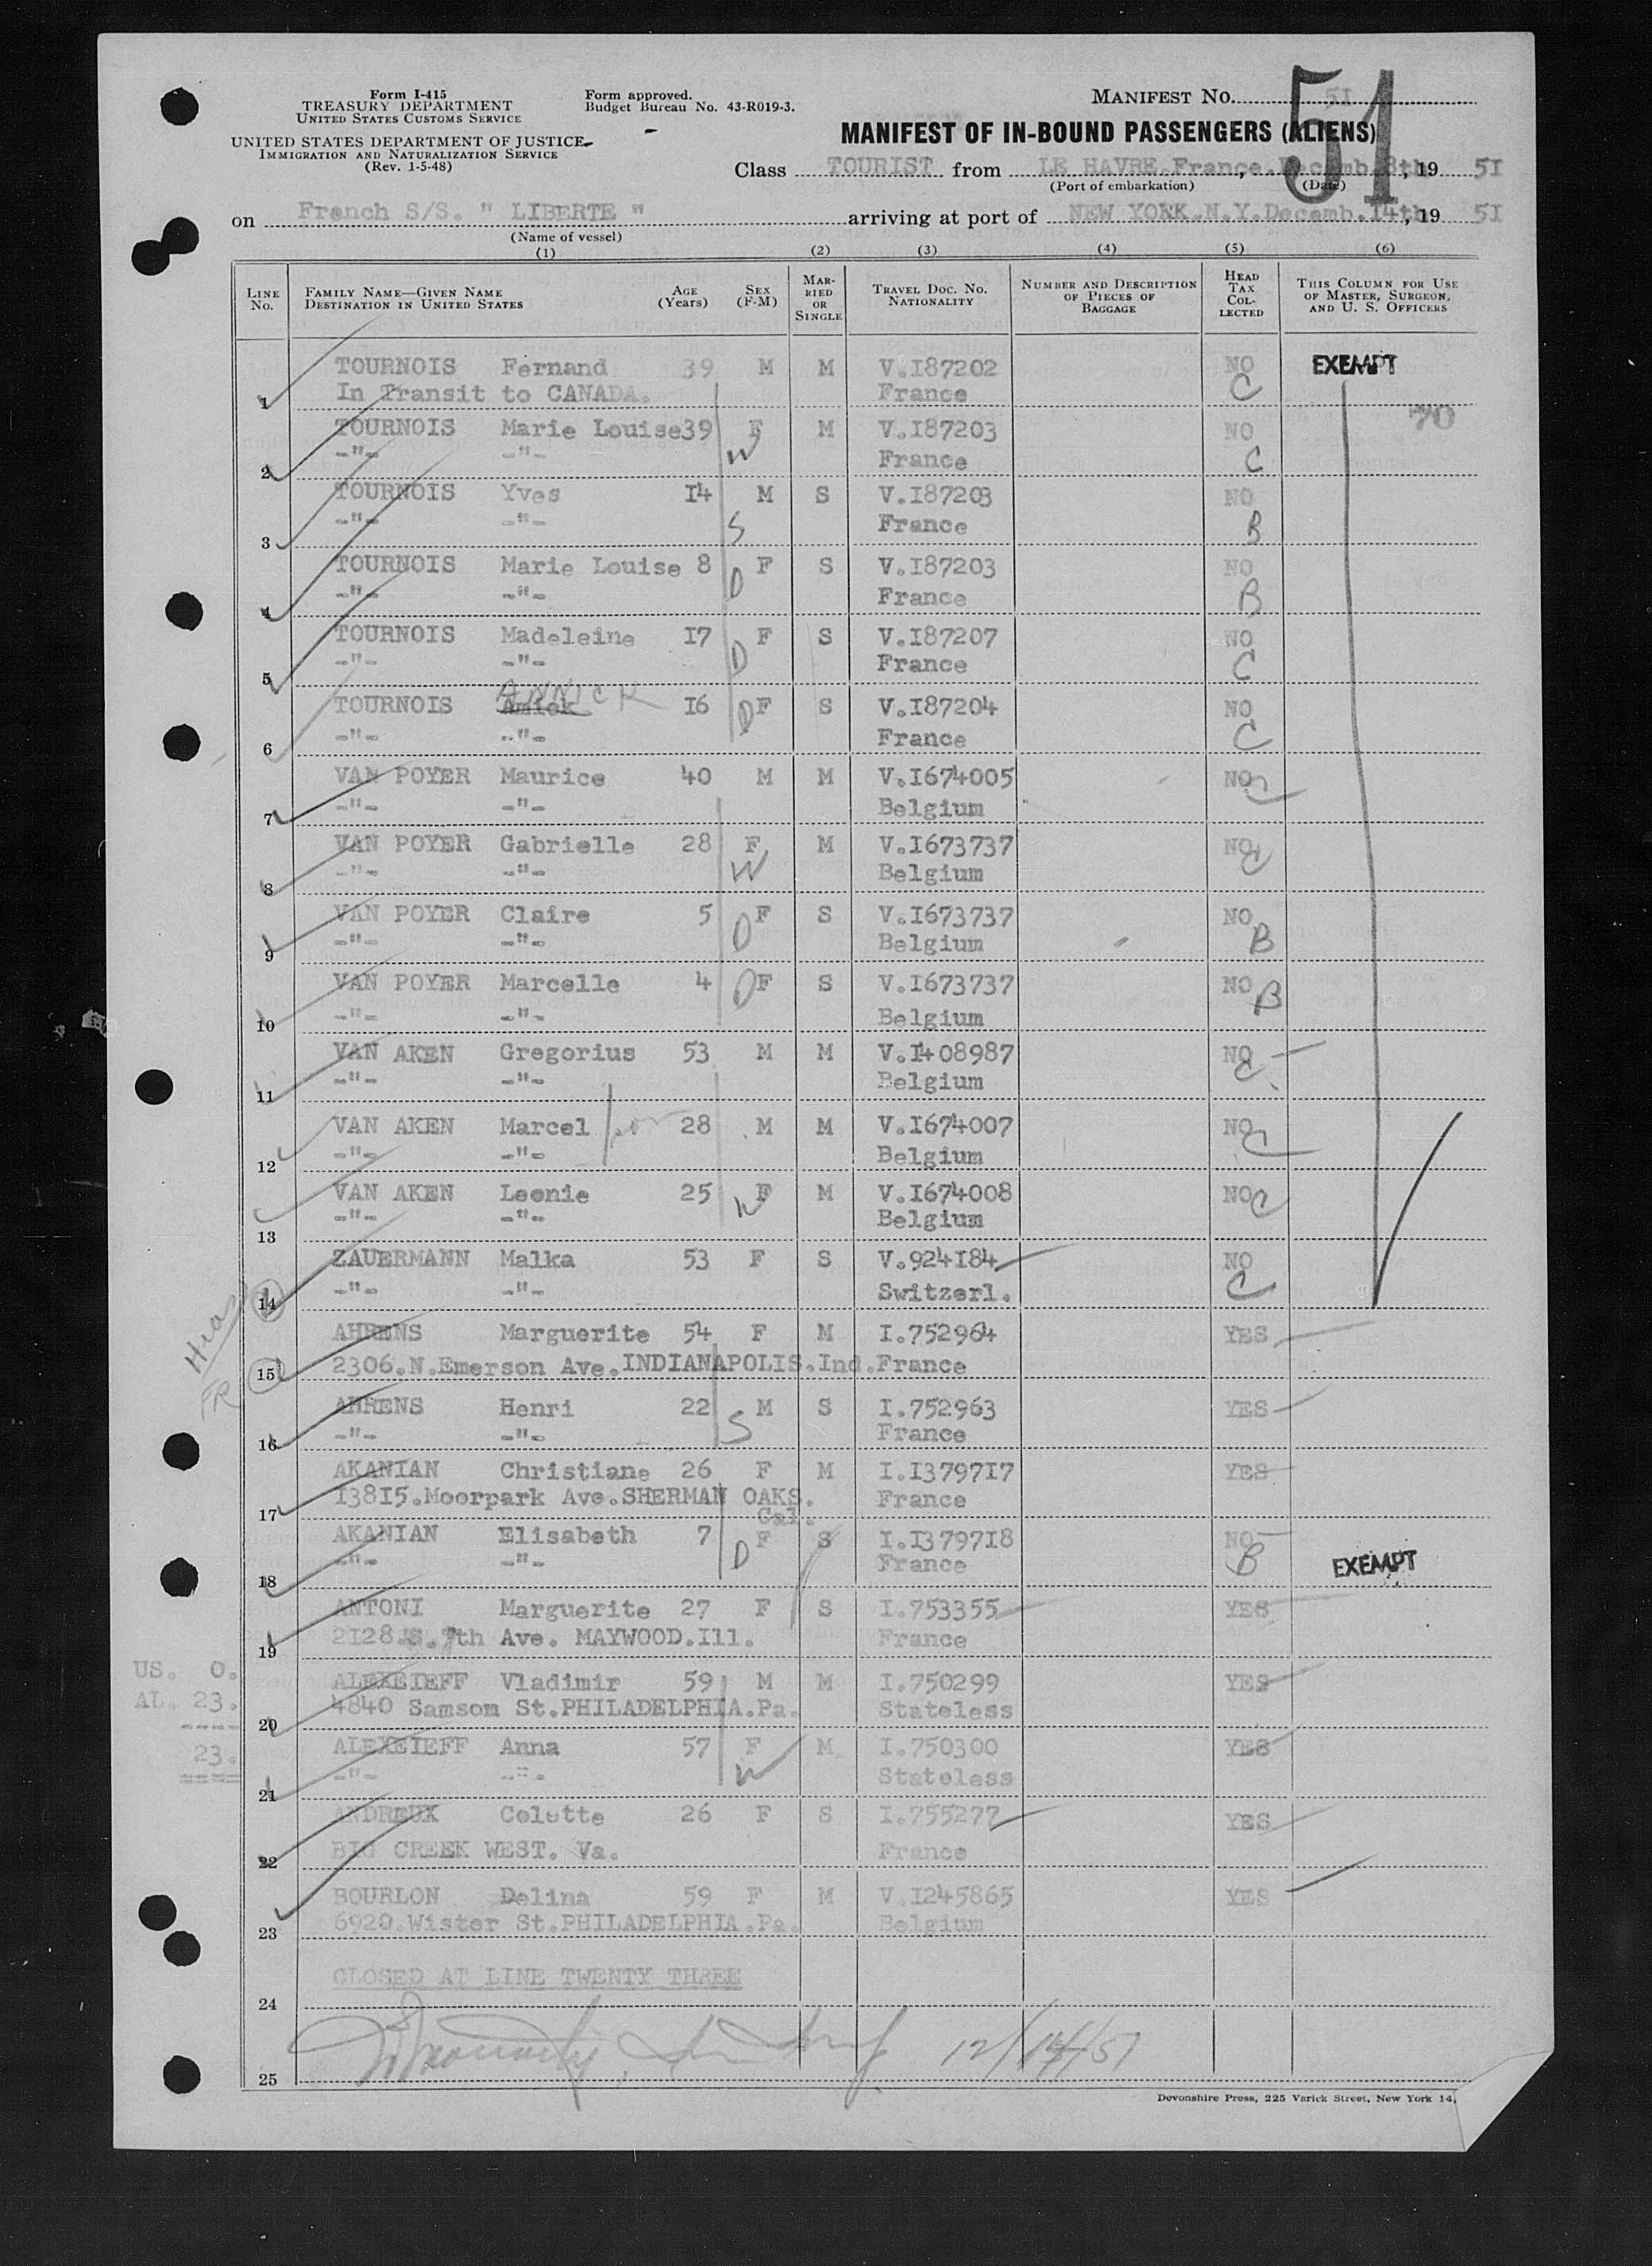 Form I-415
TREASURY DEPARTMENT
UNITED STATES CUSTOMS SERVICE
UNITED STATES DEPARTMENT OF JUSTICE
IMMIGRATION AND NATURALIZATION SERVICE
(Rev. 1-5-48)
Form approved.
Budget Bureau No. 43-R019-3.
MANIFEST NO. 51
51
MANIFEST OF IN-BOUND PASSENGERS (ALIENS)
Class TOURIST from LE HAVRE.France. Decemb.8th, 19 51
(Port of embarkation) (Date)
on French S/S. " LIBERTE " arriving at port of NEW YORK.N.Y.Decemb.14th, 19 51
(Name of vessel)
(1) (2) (3) (4) (5) (6)
LINE No. FAMILY NAME—GIVEN NAME DESTINATION IN UNITED STATES AGE (Years) SEX (F-M) MARRIED OR SINGLE TRAVEL DOC. NO. NATIONALITY NUMBER AND DESCRIPTION OF PIECES OF BAGGAGE HEAD TAX COLLECTED THIS COLUMN FOR USE OF MASTER, SURGEON, AND U. S. OFFICERS
TOURNOIS Fernand 39 M M V.I87202 NO EXEMPT
1 In Transit to CANADA. France C
TOURNOIS Marie Louise 39 F M V.I87203 NO 70
2 -"- -"- W France C
TOURNOIS Yves I4 M S V.I87203 NO
3 -"- -"- S France B
TOURNOIS Marie Louise 8 F S V.I87203 NO
4 -"- -"- D France B
TOURNOIS Madeleine I7 F S V.I87207 NO
5 -"- -"- D France C
ANNICK
TOURNOIS Amiek I6 D F S V.I87204 NO
6 -"- -"- France C
VAN POYER Maurice 40 M M V.I674005 NO C
7 -"- -"- Belgium
VAN POYER Gabrielle 28 F M V.I673737 NO C
8 -"- -"- W Belgium
VAN POYER Claire 5 F S V.I673737 NO
9 -"- -"- D Belgium B
VAN POYER Marcelle 4 D F S V.I673737 NO B
10 -"- -"- Belgium
VAN AKEN Gregorius 53 M M V.I408987 NO
11 -"- -"- Belgium C
VAN AKEN Marcel 28 M M V.I674007 NO C
12 -"- -"- Belgium
VAN AKEN Leonie 25 W F M V.I674008 NO C
13 -"- -"- Belgium
ZAUERMANN Malka 53 F S V.924I84 NO
14 -"- -"- Switzerl. C
AHRENS Marguerite 54 F M I.752964 YES
15 2306.N.Emerson Ave.INDIANAPOLIS.Ind. France
FR
AHRENS Henri 22 M S I.752963 YES
16 -"- -"- S France
AKANIAN Christiane 26 F M I.I3797I7 YES
17 I38I5.Moorpark Ave.SHERMAN OAKS. Cal. France
AKANIAN Elisabeth 7 F S I.I3797I8 NO
18 -"- -"- D France B EXEMPT
ANTONI Marguerite 27 F S I.753355 YES
19 2I28.S.7th Ave. MAYWOOD.Ill. France
US. 0.
AL. 23.
----
23.
====
ALEXEIEFF Vladimir 59 M M I.750299 YES
20 4840 Samsom St.PHILADELPHIA.Pa. Stateless
ALEXEIEFF Anna 57 F M I.750300 YES
21 -"- -"- W Stateless
ANDREUX Colette 26 F S I.755277 YES
22 BIG CREEK WEST. Va. France
BOURLON Delina 59 F M V.I245865 YES
23 6920.Wister St.PHILADELPHIA.Pa. Belgium
CLOSED AT LINE TWENTY THREE
24
12/14/51
25
Devonshire Press, 225 Varick Street, New York 14,